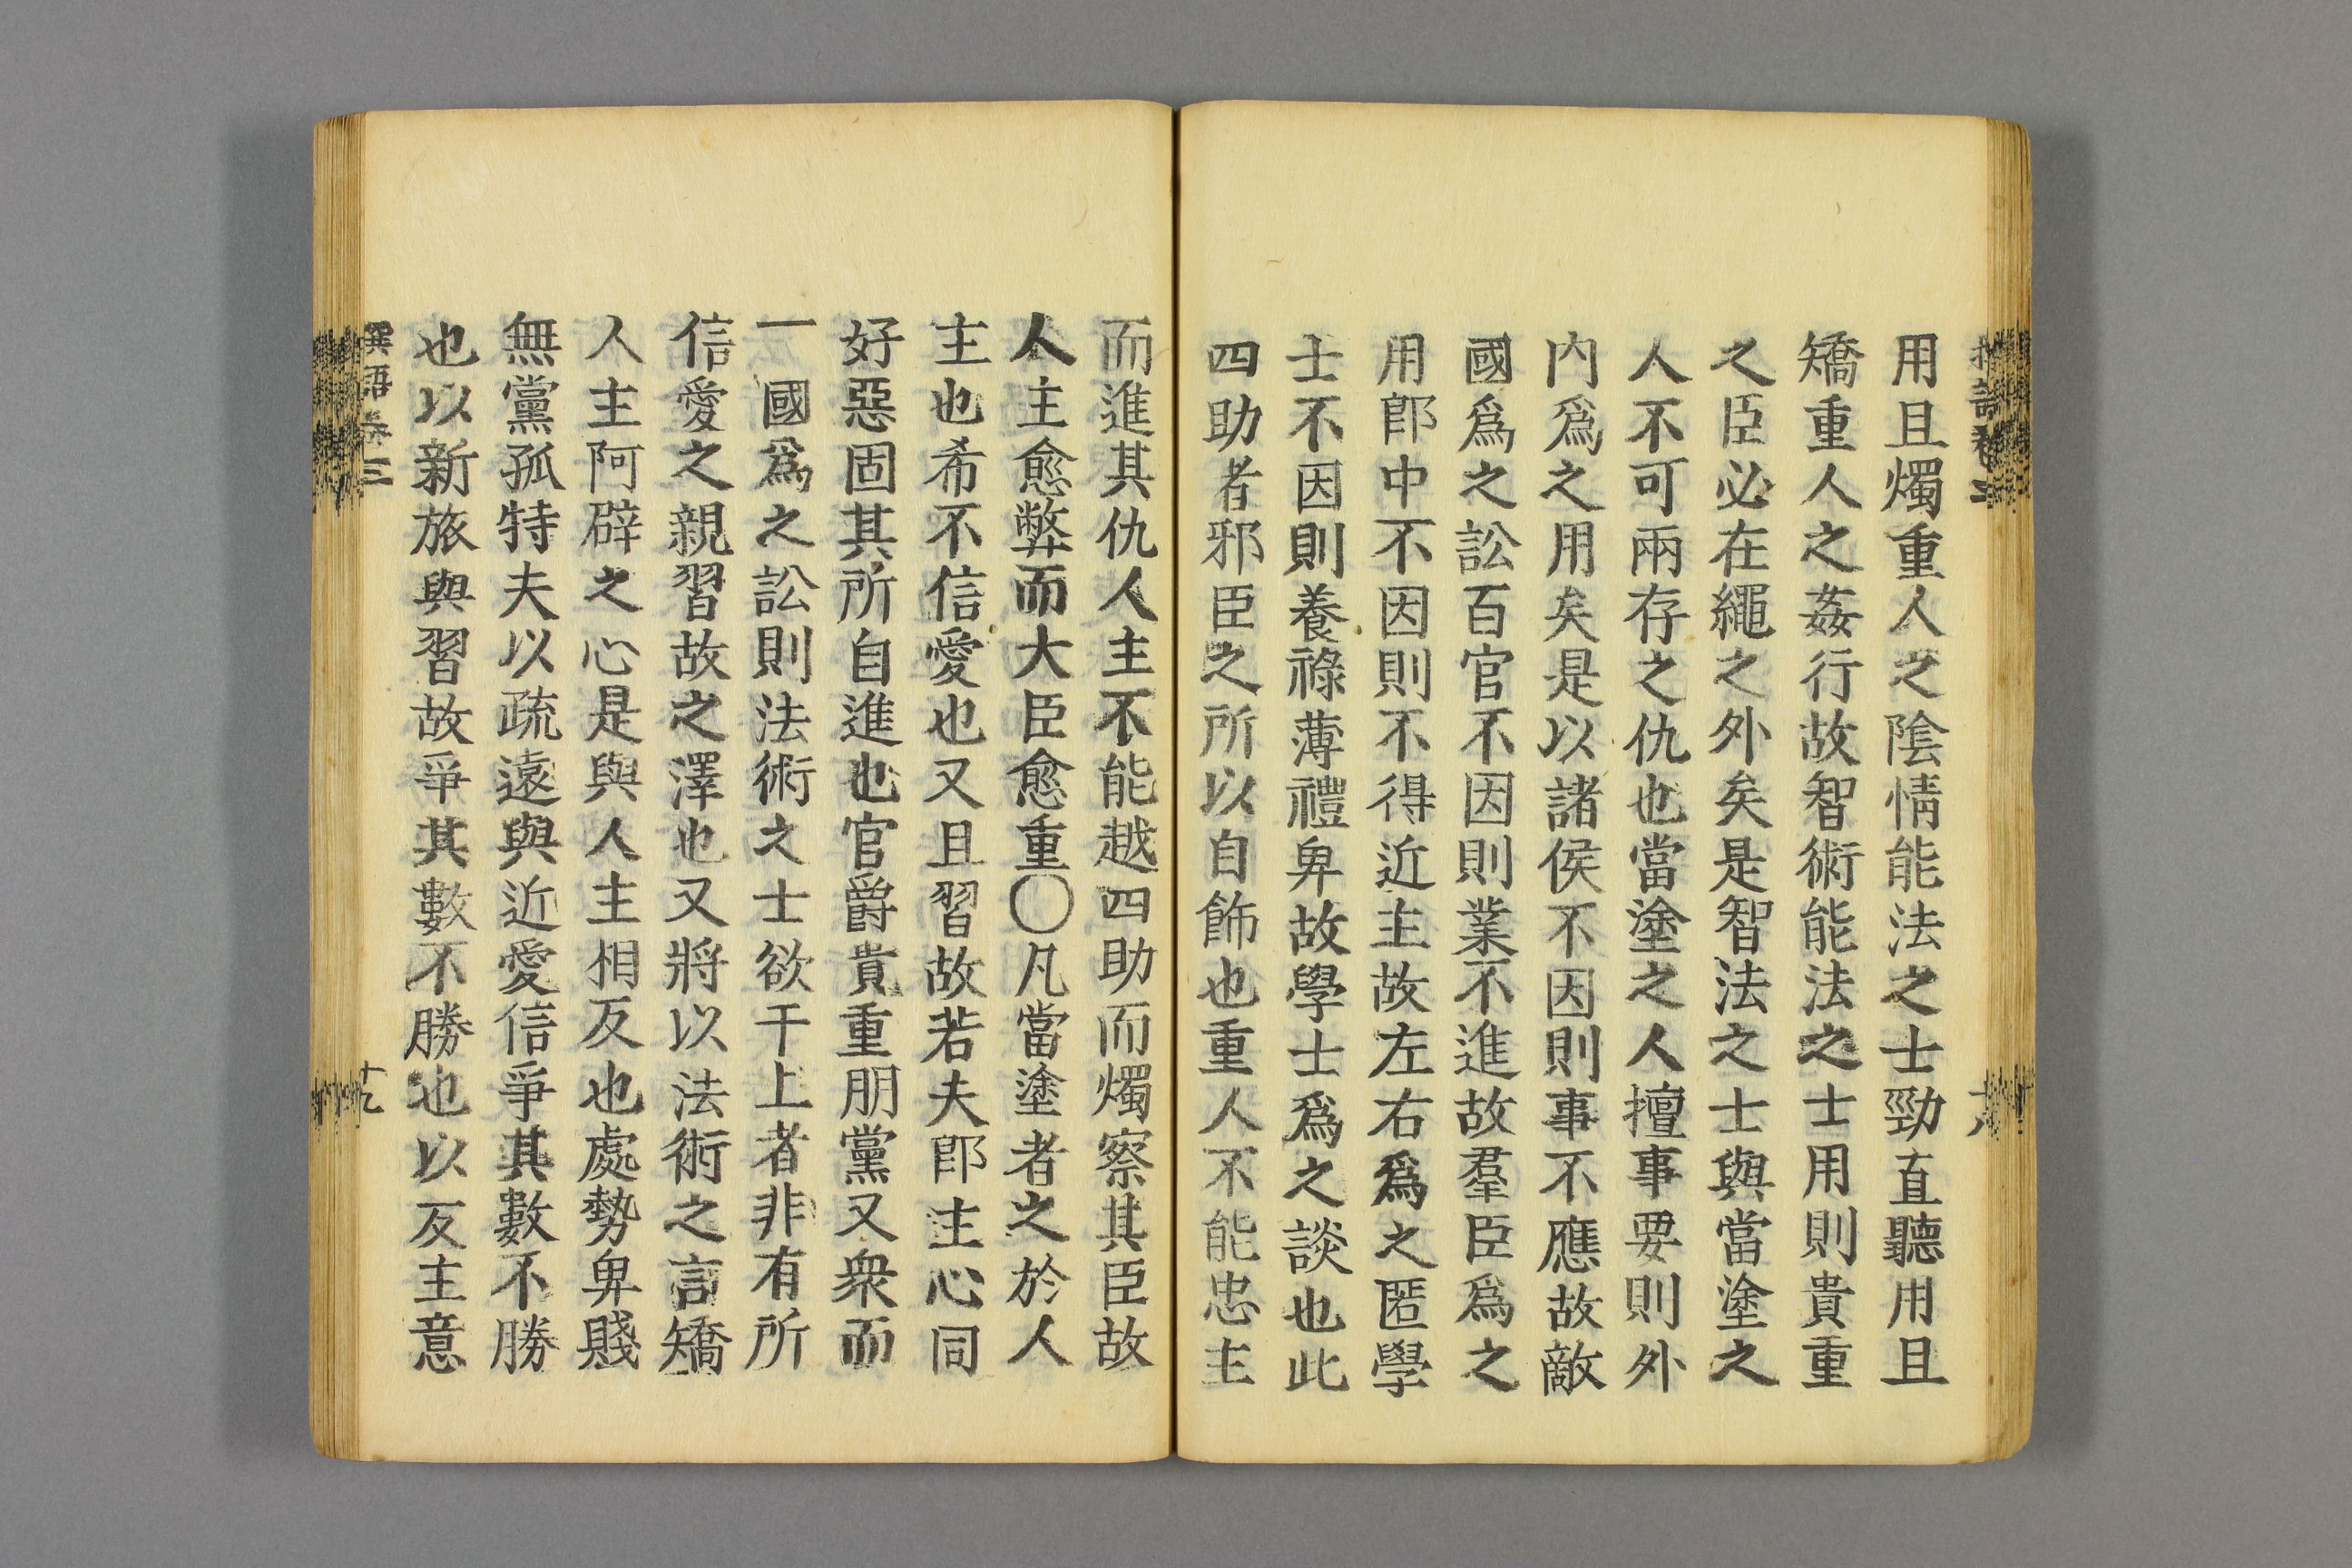 用且燭重人之陰情能法之士勁直聽用且
矯重人之姦行故智術能法之士用則貴重
之臣必在繩之外矣是智法之士與當塗之
人不可兩存之仇也當塗之人擅事要則外
内爲之用矣是以諸侯不因則事不應故敵
國爲之訟百官不因則業不進故羣臣爲之
用郎中不因則不得近主故左右爲之匿學
士不因則養祿薄禮卑故學士爲之談也此
四助者邪臣之所以自飾也重人不能忠主
而進其仇人主不能越四助而燭察其臣故
人主愈弊而大臣愈重〇凡當塗者之於人
主也希不信愛也又且習故若夫郎主心同
好惡固其所自進也官爵貴重朋黨又衆而
一國爲之訟則法術之士欲干上者非有所
信愛之親習故之澤也又將以法術之言矯
人主阿辟之心是與人主相反也處勢卑賤
無黨孤特夫以疏遠與近愛信爭其數不勝
也以新旅與習故爭其數不勝也以反主意
語卷三
十九